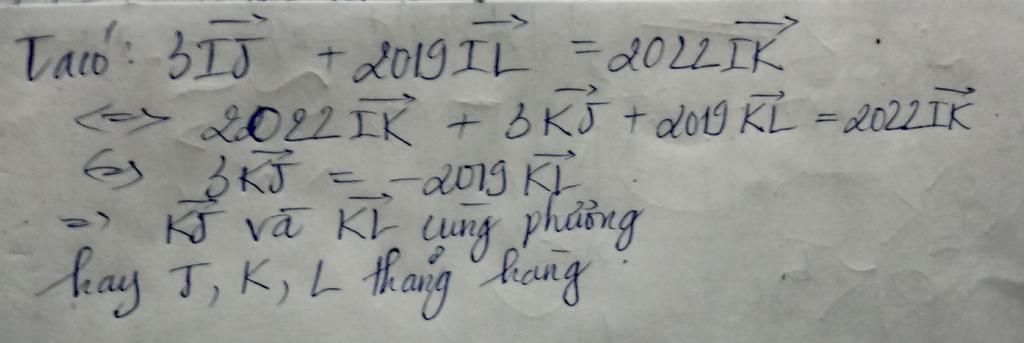 Ta có: 3\overrightarrow{IJ} + 2019\overrightarrow{IL} = 2022\overrightarrow{IK}
<=> 2022\overrightarrow{IK} + 3\overrightarrow{KJ} + 2019\overrightarrow{KL} = 2022\overrightarrow{IK}
<=> 3\overrightarrow{KJ} = -2019\overrightarrow{KL}
=> \overrightarrow{KJ} và \overrightarrow{KL} cùng phương
hay J, K, L thẳng hàng.